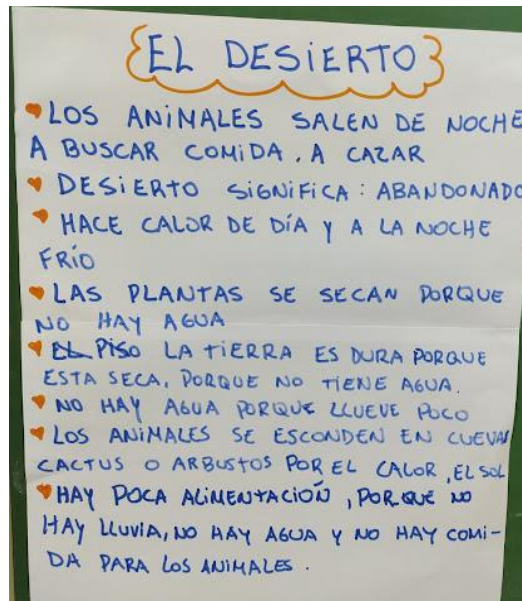 EL DESIERTO
LOS ANIMALES SALEN DE NOCHE
A BUSCAR COMIDA. A CAZAR
DESIERTO SIGNIFICA: ABANDONADO
HACE CALOR DE DÍA Y A LA NOCHE
FRÍO
LAS PLANTAS SE SECAN PORQUE
NO HAY AGUA
EL PISO LA TIERRA ES DURA PORQUE
ESTA SECA, PORQUE NO TIENE AGUA.
NO HAY AGUA PORQUE LLUEVE POCO
LOS ANIMALES SE ESCONDEN EN CUEVAS
CACTUS O ARBUSTOS POR EL CALOR, EL SOL
HAY POCA ALIMENTACIÓN, PORQUE NO
HAY LLUVIA, NO HAY AGUA Y NO HAY COMI-
DA PARA LOS ANIMALES.